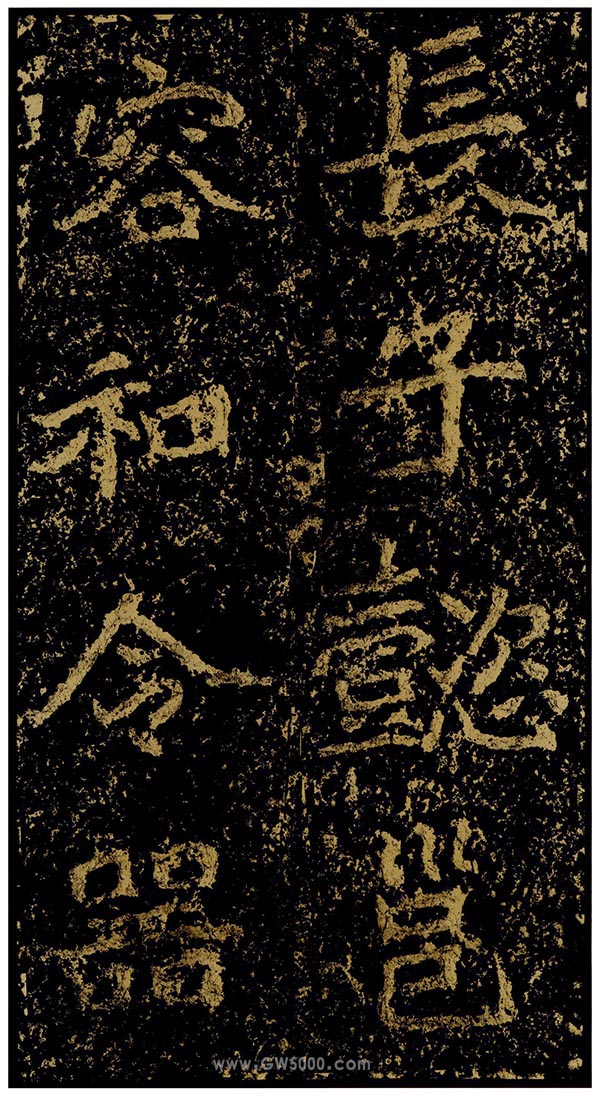 長子懿邕
容和令器
www.GW5000.com